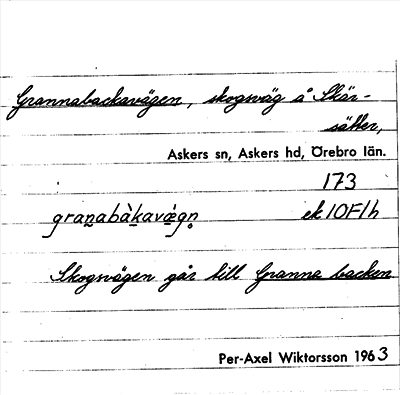 Grannabackavägen, skogsväg å Skär-
sätter,
Askers sn, Askers hd, Örebro län.
173
granabàkavǽgn̥ ek 10F1h
Skogsvägen går till Granna backen
Per-Axel Wiktorsson 1963